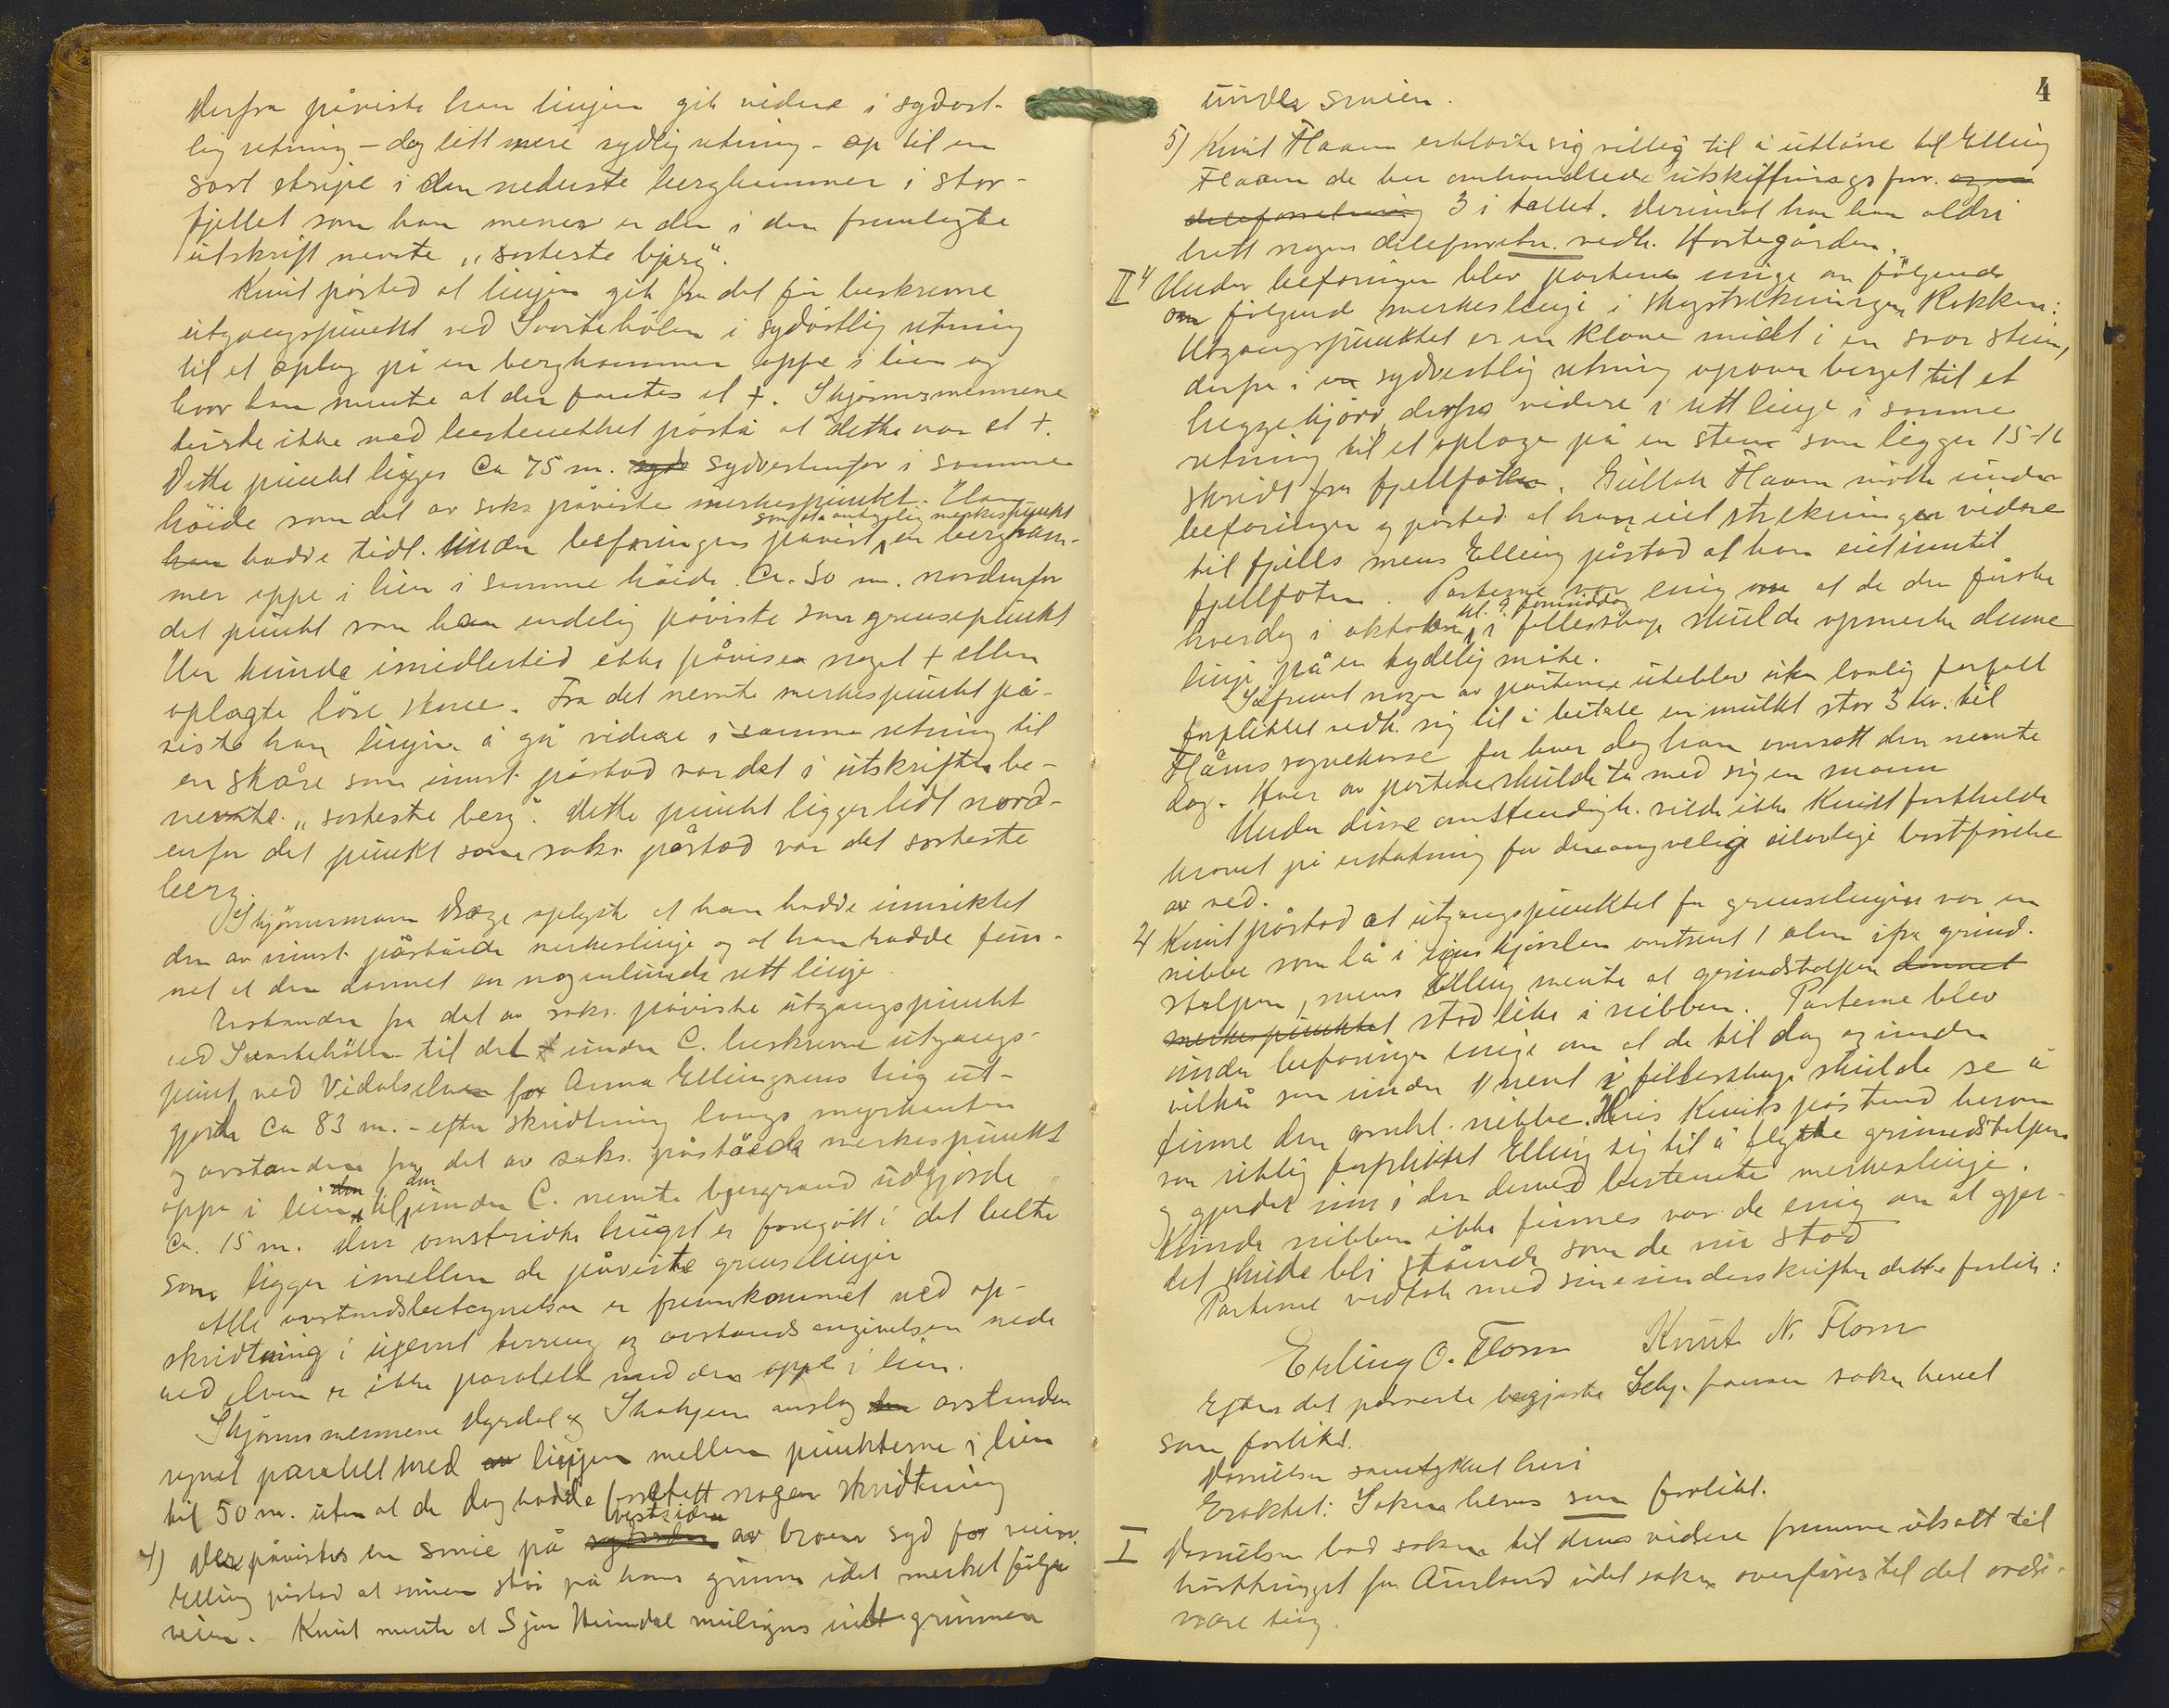 Derfra påviste han linjen gik videre i sydøst-
lig retning – dog litt mere sydlig retning – op til en
sort stripe i den nederste berghammer i stor-
fjellet som han mener er den i den fremlagte
utskrift nevnte „sorteste bjerg".
Knut påstod at linjen gik fra det før beskrevne
utgangspunkt ved Svartehølen i sydøstlig retning
til et oplag på en berghammer oppe i lien og
hvor han mente at der fantes et +. Skjønnsmennene
turde ikke med bestemthet påstå at dette var et +.
Dette punkt ligger Ca 75 m. syd sydvestenfor i samme
høide som det av saks. påviste merkespunkt.
han hadde tidl. Under befaringen påvist en bergham-
som et antagelig merkespunkt
mer oppe i lien i samme høide Ca. 50 m. nordenfor
det punkt som han endelig påviste som grensepunkt
Her kunde imidlertid ikke påvises noget + eller
oplagte løse stene. Fra det nevnte merkespunkt på-
viste han linjen å gå videre i samme retning til
en skåre som innst. påstod var det i utskriften be-
nevnte „sorteste berg". Dette punkt ligger lidt nord-
enfor det punkt som saks. påstod var det sorteste
berg.
Skjønnsmann Hæge oplyste at han hadde innsiktet
den av innst. påståede merkeslinje og at han hadde fun-
net at den dannet en nogenlunde rett linje
Avstanden fra det av saks. påviste utgangspunkt
ved Svartehølen til det under C. beskrevne utgangs-
punkt ved Vidalselven for Anna Ellingsens teig ut-
gjorde Ca 83 m. – efter skridtning langs myrkanten
og avstanden fra det av saks. påståede merkespunkt
oppe i lien den til den under C. nevnte bjergrand utgjorde
Ca. 15 m. Den omstridte hugst er foregått i det belte
som ligger imellem de påviste grenselinjer
Alle avstandsbetegnelser er fremkommet ved op-
skridtning i ujevnt terreng og avstandsangivelsen nede
ved elven er ikke paralell med den oppe i lien.
Skjønnsmennene Dyrdal og Skahjem anslog den avstanden
regnet paralelt med av linjen mellem punkterne i lien
til 50 m. uten at de dog hadde foretatt nogen skridtning
4) Der påvistes en smie på sydsiden vestsiden av broen syd for veien.
Elling påstod at smien stod på hans grunn idet merket følger
veien. Knut mente at Sjur Heimdal muligens eide grunnen
4
under smien.
5) Knut Flaam erklærte sig villig til å utlåne til Elling
Flaam de her omhandlede utskiftningsforr. og en
deleforretning 3 i tallet. Derimot har han aldri
hatt nogen deleforretn. vedk. Hortegården.
II 1) Under befaringen blev partene enige om følgende
om følgende merkeslinje i skogstrekningen Kokken:
Utgangspunktet er en klove midt i en svær stein,
derfra i en sydvestlig retning opover berget til et
heggekjørr, derfra videre i rett linje i samme
retning til et oplag på en sten som ligger 15-16
skridt fra fjellfoten. Gullak Flaam møtte under
befaringen og påstod at han eiet strekningen videre
til fjells mens Elling påstod at han eiet inntil
fjellfoten. Parterne var enig om at de den første
hverdag i oktober kl. 9 formiddag i fellesskap skulde opmerke denne
linje på en tydelig måte.
Såfremt nogen av partene uteblev uten lovlig forfall
forpliktet vedk. sig til å betale en mulkt stor 3 kr. til
Flåms sognekasse for hver dag han oversatt den nevnte
dag. Hver av partene skulde ta med sig en mann
Under disse omstendigh. vilde ikke Knut fastholde
kravet på erstatning for den angivelig ulovlige bortførelse
av ved.
2) Knut påstod at utgangspunktet for grenselinjen var en
nibbe som lå i kjørslen omtrent 1 alen ifra grind-
stolpen, mens Elling mente at grindstolpen dannet
merkespunktet stod like i nibben. Parterne blev
under befaringen enige om at de til dag og under
vilkår som under 1 nevnt i fellesskap skulde se å
finne den omhl. nibbe. Hvis Knuts påstand herom
var riktig forpliktet Elling sig til å flytte grindstolpen
og gjerdet inn i den derved bestemte merkeslinje.
Kunde nibben ikke finnes var de enig om at gjer-
det skulde bli stående som de nu stod
Parterne vedtok med sine underskrifter dette forlik:
Erling O. Flåm Knut N. Flåm
Efter det passerte begjærte Selj. fansen saken hevet
som forlikt.
Danielsen samtykket heri
Eraktet: Saken heves som forlikt.
I Danielsen bad saken til dens videre fremme utsatt til
høsttinget for Aurland idet saken overføres til det ordi-
nære ting.